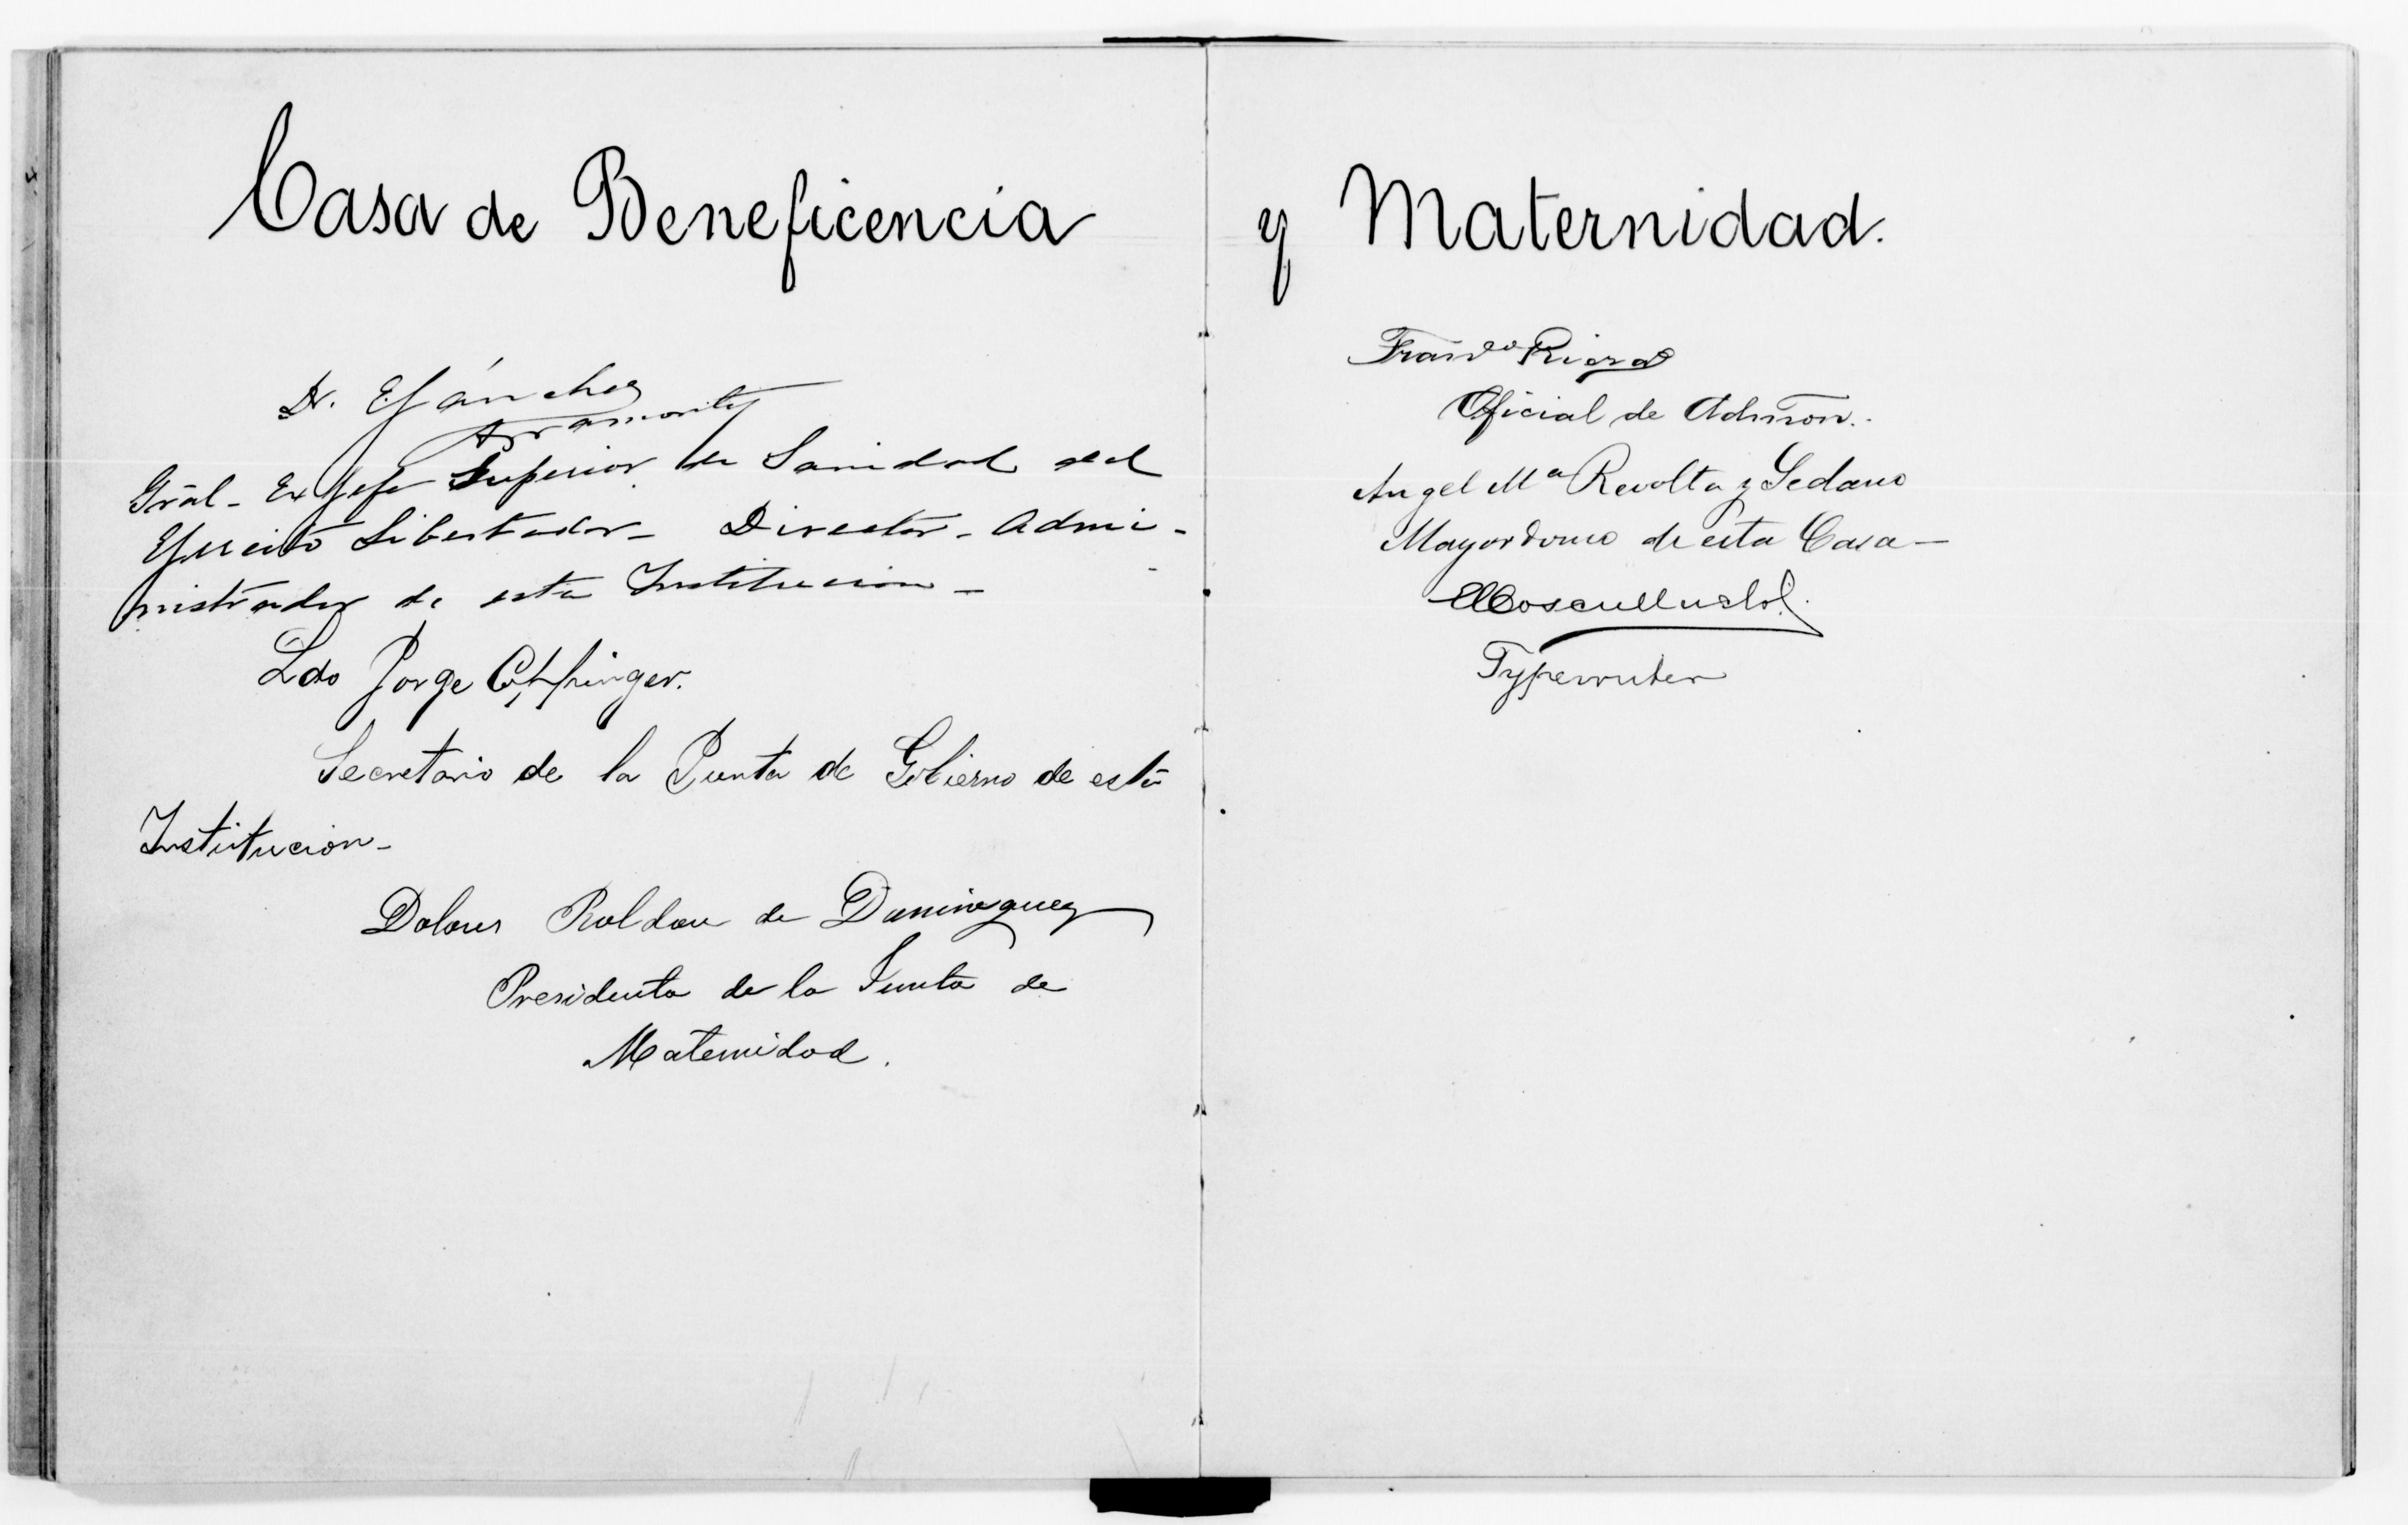 Casa de Beneficencia
y Maternidad.
Dr. E Sánchez
Agramonte
Grāl - Ex Jefe Superior de Sanidad del
Ejercito Libertador - Director - Admi-
nistrador de esta Institucion -
Ldo Jorge
Secretario de la Junta de Gobierno de esta
Institucion -
Dolores Roldan de Dominguez
Presidenta de la Junta de
Maternidad.
Franco Riera
Oficial de Admon.
Angel Ma Revolta y Sedano
Mayordomo de esta Casa -
Typewriter